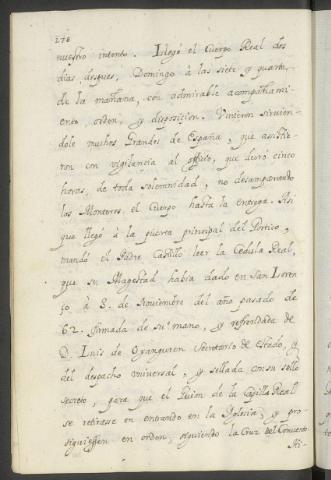 278
nuestro intento. Llegó el Cuerpo Real dos
dias despues, Domingo à las siete y quarto
de la mañana, con admirable acompañami-
ento, orden, y disposicion. Vinieron sirvien-
dole muchos Grandes de España, que assistie-
ron con vigilancia al officio, que duró cinco
horas, de toda solemnidad, no desamparando
los Monteros el Cuerpo hasta la entrega. Asi
que llegó à la puerta principal del Portico,
mandó el Padre Castillo leer la Cedula Real,
que su Magestad habia dado en San Loren
zo à 8. de Noviembre del año pasado de
62. firmada de su mano, y refrendada de
D. Luis de Oyanguren Secretario de Estado, y
del despacho universal, y sellada con su sello
secreto, para que el Guion de la Capilla Real
se retirase en entrando en la Iglesia; y pro-
siguiessen en orden, siguiendo la Cruz del Convento